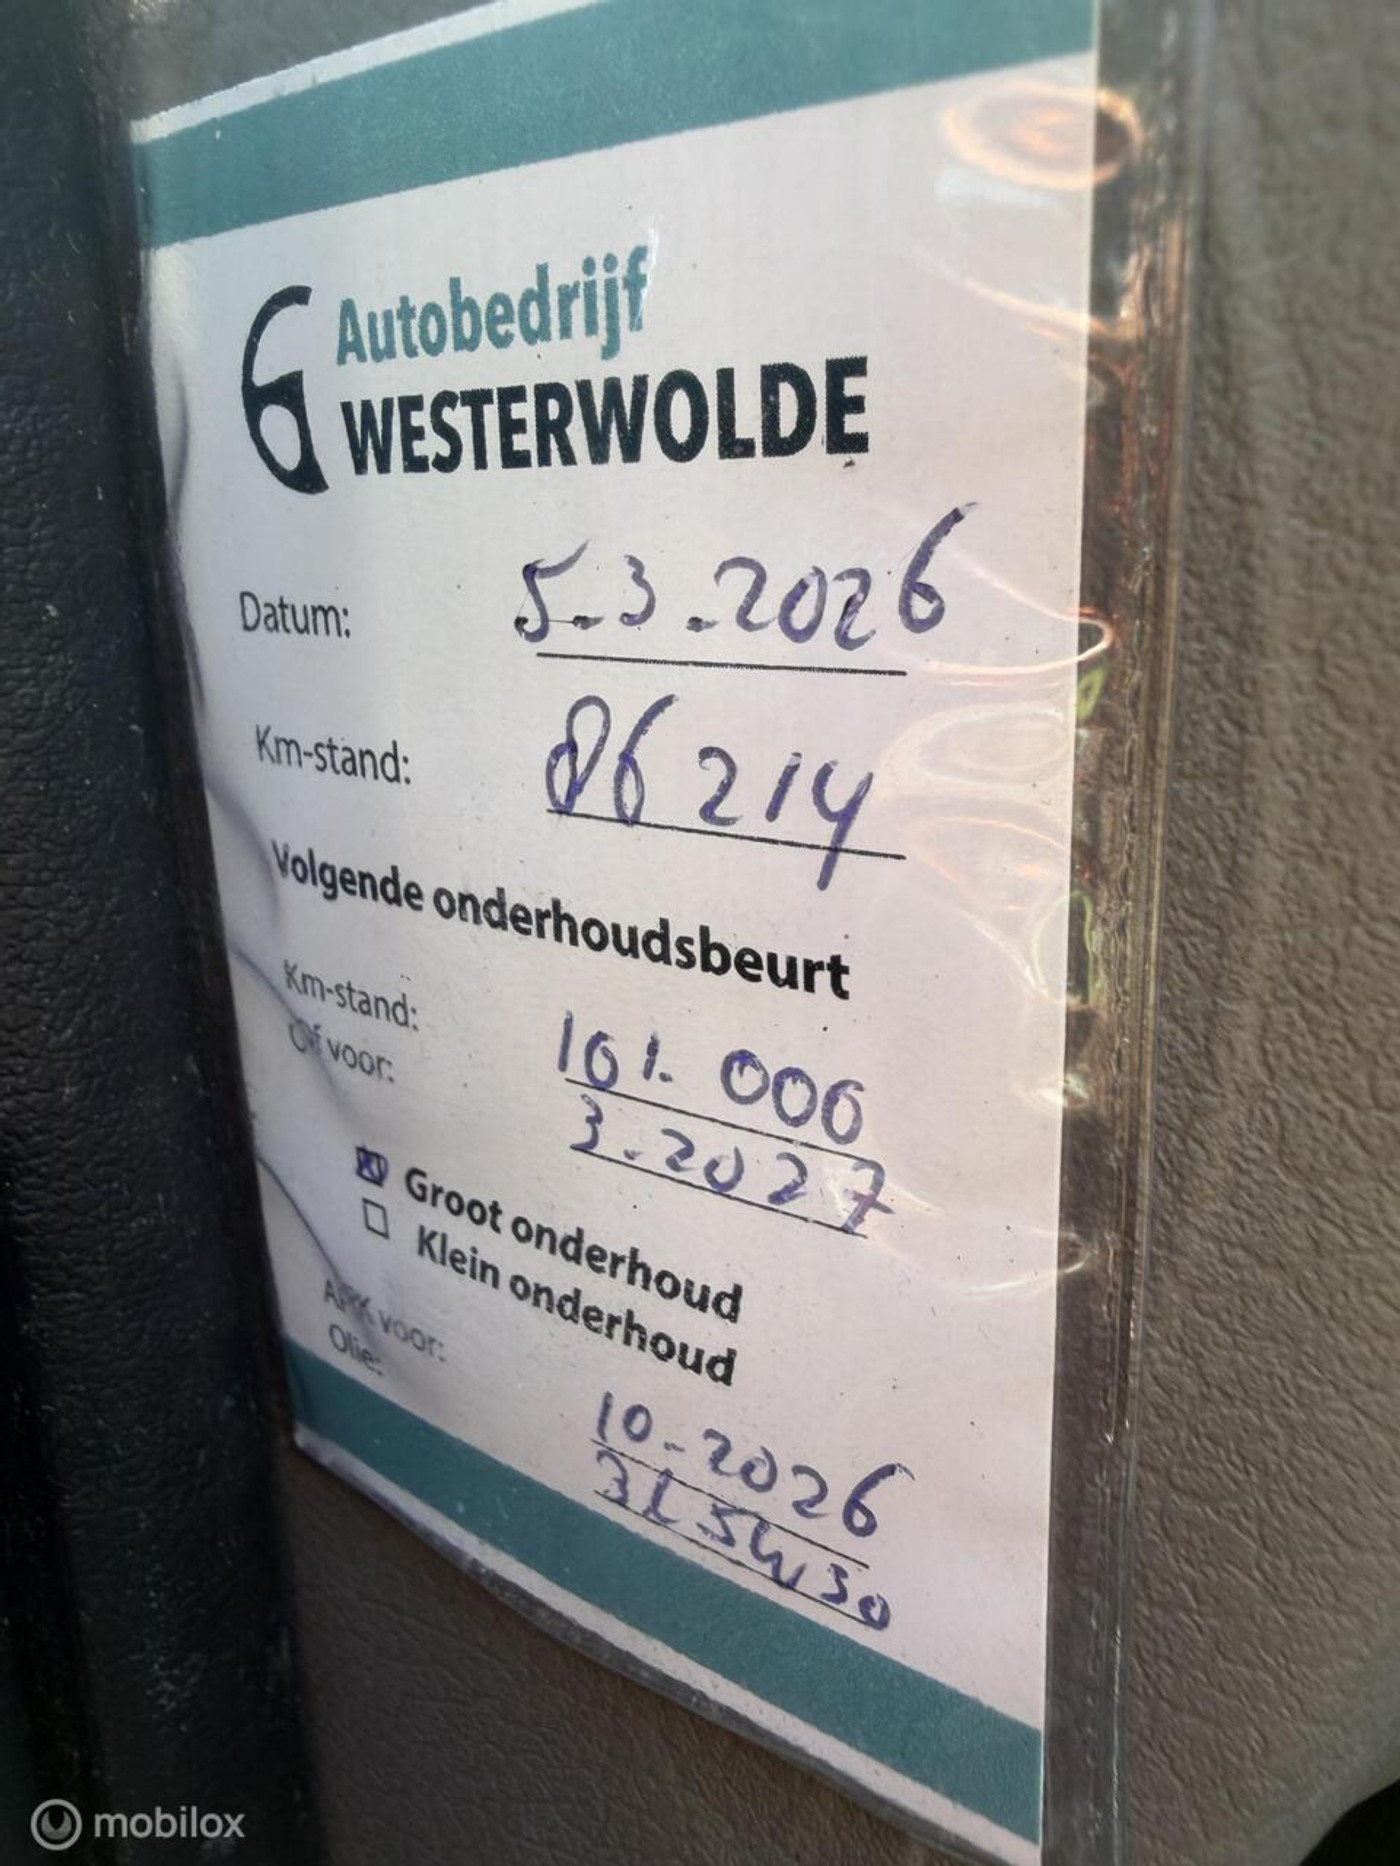 Autobedrijf
WESTERWOLDE
Datum: 5.3.2026
Km-stand: 86214
Volgende onderhoudsbeurt
Km-stand: 101.000
Of voor: 3.2027
Groot onderhoud
Klein onderhoud
APK voor: 10-2026
Olie: 5W30
mobilox